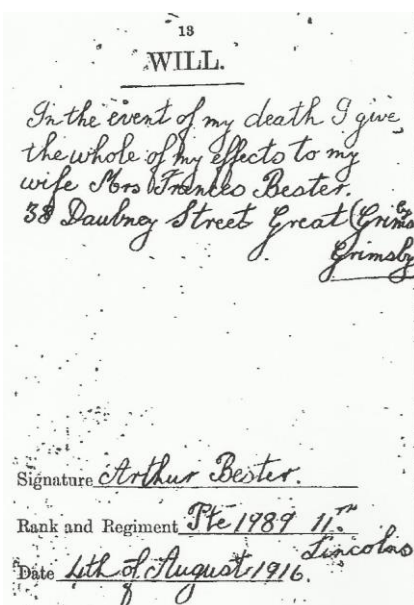 13
WILL.
In the event of my death I give
the whole of my effects to my
wife Mrs Frances Bester.
38 Daubney Street Great (Grimsby
Grimsby
Signature Arthur Bester.
Rank and Regiment Pte 1989 11th
Lincolns
Date 4th of August 1916.